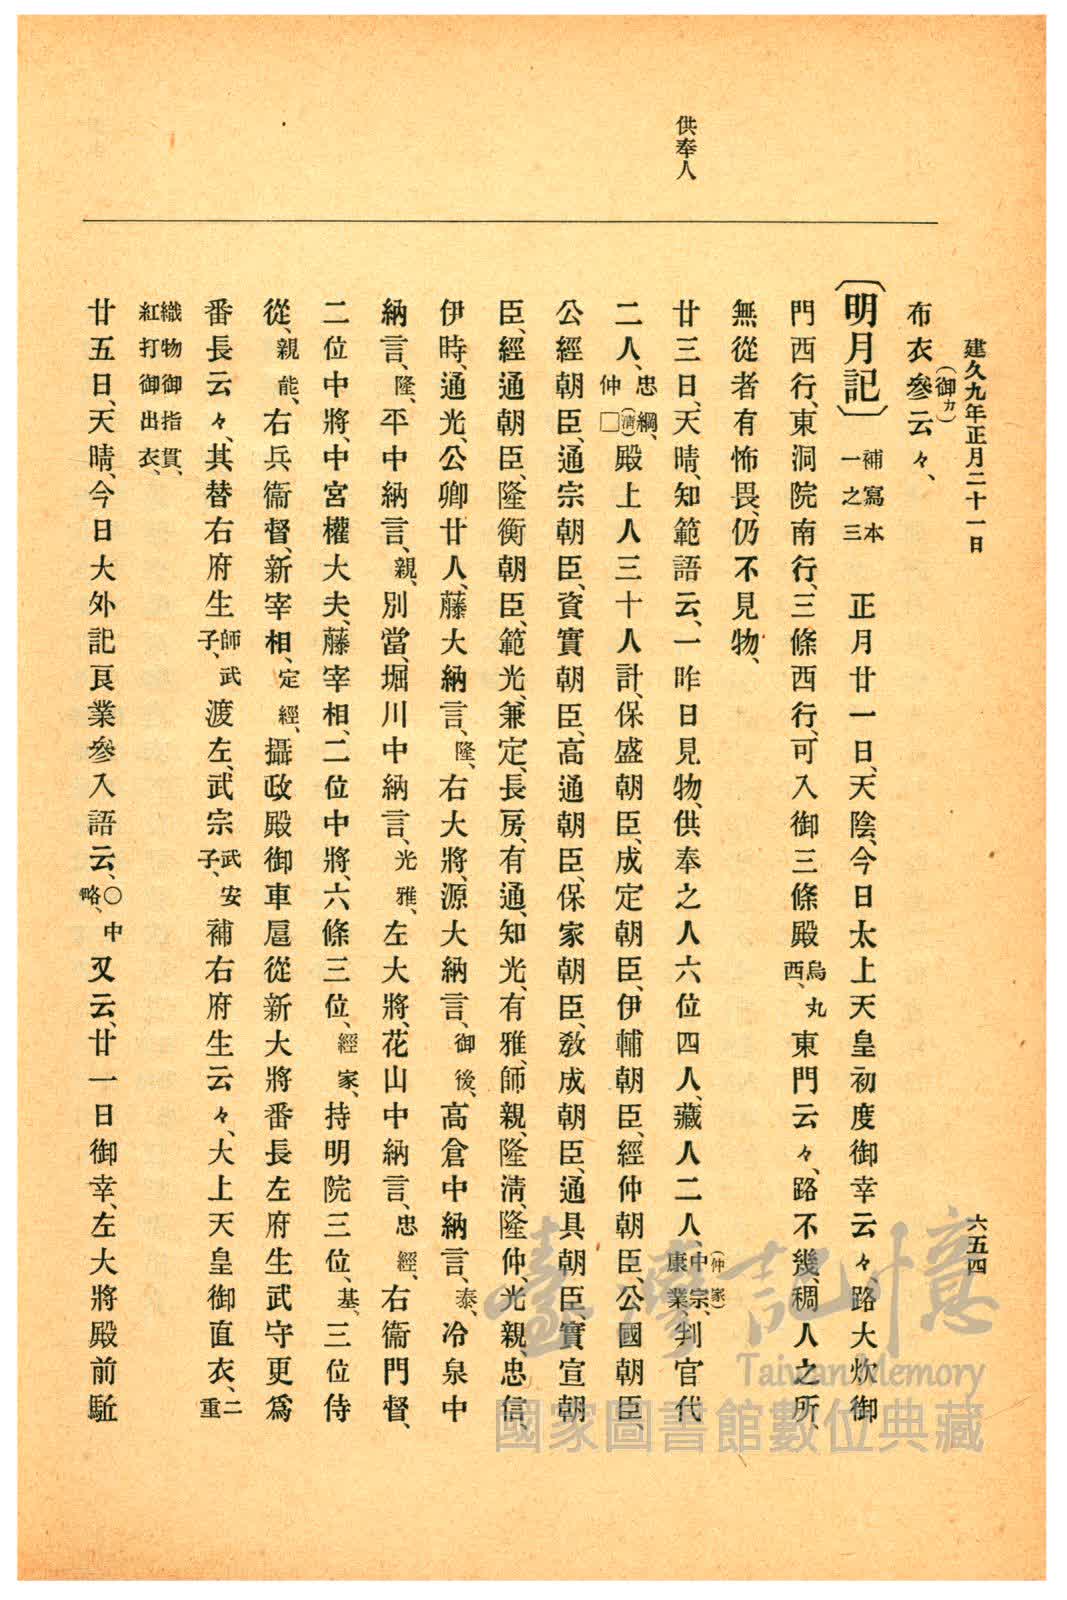 建久九年正月二十一日
六五四
供奉人
布衣參(御カ)云々、
〔明月記〕補寫本一之三 正月廿一日、天陰、今日太上天皇初度御幸云々、路大炊御
門西行、東洞院南行、三條西行、可入御三條殿烏丸西、東門云々、路不幾、稠人之所、
無從者有怖畏、仍不見物、
廿三日、天晴、知範語云、一昨日見物、供奉之人六位四人、藏人二人、(仲家)中宗、康業、判官代
二人、忠綱、仲□(淸)殿上人三十人計、保盛朝臣、成定朝臣、伊輔朝臣、經仲朝臣、公國朝臣、
公經朝臣、通宗朝臣、資實朝臣、高通朝臣、保家朝臣、敎成朝臣、通具朝臣、實宣朝
臣、經通朝臣、隆衡朝臣、範光、兼定、長房、有通、知光、有雅、師親、隆淸、隆仲、光親、忠信、
伊時、通光、公卿廿人、藤大納言、隆、右大將、源大納言、御後、高倉中納言、泰、冷泉中
納言、隆、平中納言、親、別當、堀川中納言、光雅、左大將、花山中納言、忠經、右衞門督、
二位中將、中宮權大夫、藤宰相、二位中將、六條三位、經家、持明院三位、基、三位侍
從、親能、右兵衞督、新宰相、定經、攝政殿御車扈從新大將番長左府生武守更爲
番長云々、其替右府生師武子、渡左、武宗武安子、補右府生云々、大上天皇御直衣、二重
織物御指貫、紅打御出衣、
廿五日、天晴、今日大外記良業參入語云、○中略、又云、廿一日御幸、左大將殿前駈
臺灣記憶
Taiwan Memory
國家圖書館數位典藏